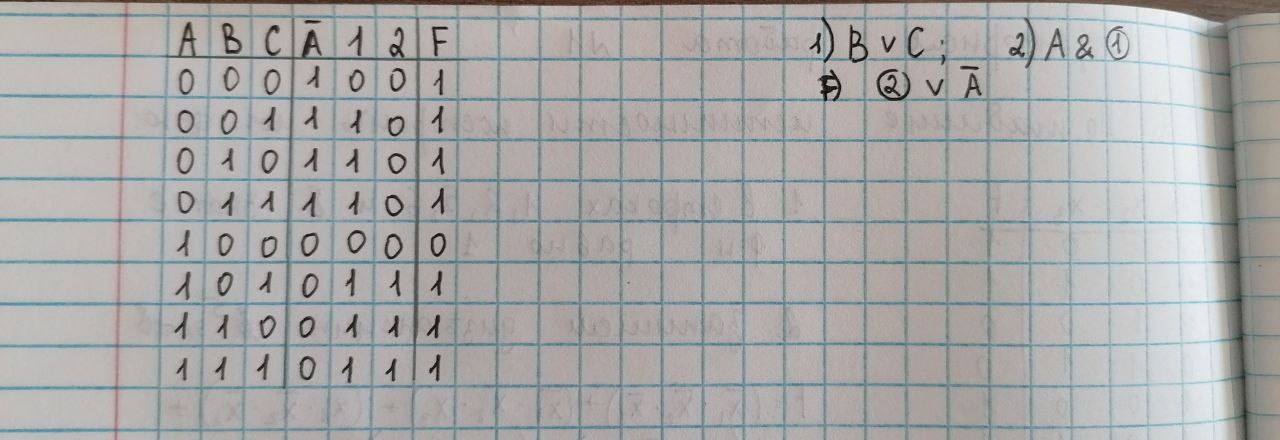 A B C Ā 1 2 F
0 0 0 1 0 0 1
0 0 1 1 1 0 1
0 1 0 1 1 0 1
0 1 1 1 1 0 1
1 0 0 0 0 0 0
1 0 1 0 1 1 1
1 1 0 0 1 1 1
1 1 1 0 1 1 1
1) B ∨ C; 2) A & ①
F) ② ∨ Ā